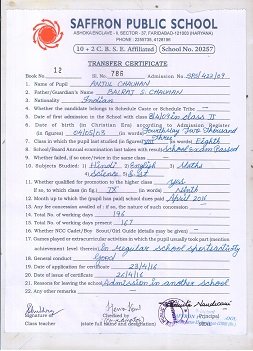 SAFFRON PUBLIC SCHOOL
ASHOKA ENCLAVE, II, SECTOR - 37, FARIDABAD-121003 (HARYANA)
PHONE : 2255735, 4128195
10 + 2 C. B. S. E. Affiliated School No. 20257
TRANSFER CERTIFICATE
Book No. 12 Sl. No. 786 Admission No. SPS/422/09
1. Name of Pupil CHAUHAN
2. Father/Guardian's Name BALRAJ S. CHAUHAN
3. Nationality Indian
4. Whether the candidate belongs to Schedule Caste or Schedule Tribe
5. Date of first admission in the School with class in class II
6. Date of birth (in Christian Era) according to Admission Register
(in figures) 04/05/03 (in words) Fourth May Two Thousand Three
7. Class in which the pupil last studied (in figures) VIII Eighth
8. School/Board Annual examination last taken with result School Exam Passed
9. Whether failed, if so once/twice in the same class
10. Subjects Studied: 1) Hindi 2) English 3) Maths
4) Science 5) S.St
11. Whether qualified for promotion to the higher class Yes
If so, to which class (in fig.) IX (in words) Ninth
12. Month up to which the (pupil has paid) school dues paid April 2016
13. Any fee concession availed of : if so, the nature of such concession
14. Total No. of working days 196
15. Total No. of working days present 167
16. Whether NCC Cadet/Boy Scout/Girl Guide (details may be given)
17. Games played or extracurricular activities in which the pupil usually took part (mention
achievement level therein) In regular school sports activity
18. General conduct Good
19. Date of application for certificate 23/4/16
20. Date of issue of certificate 26/4/16
21. Reasons for leaving the school Admission in another school
22. Any other remarks
Signature of Checked by
Class teacher (state full name and designation)